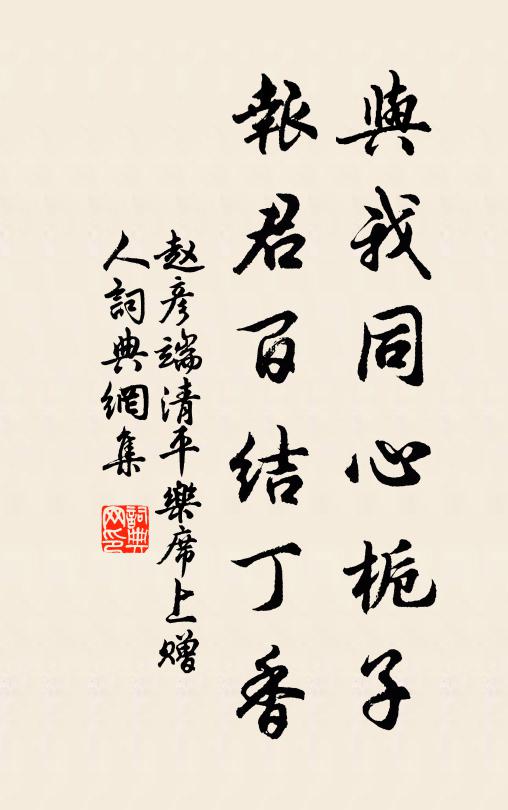 與我同心栀子
報君百結丁香
赵彦端清平樂席上赠
人詞典網集
詞典网印